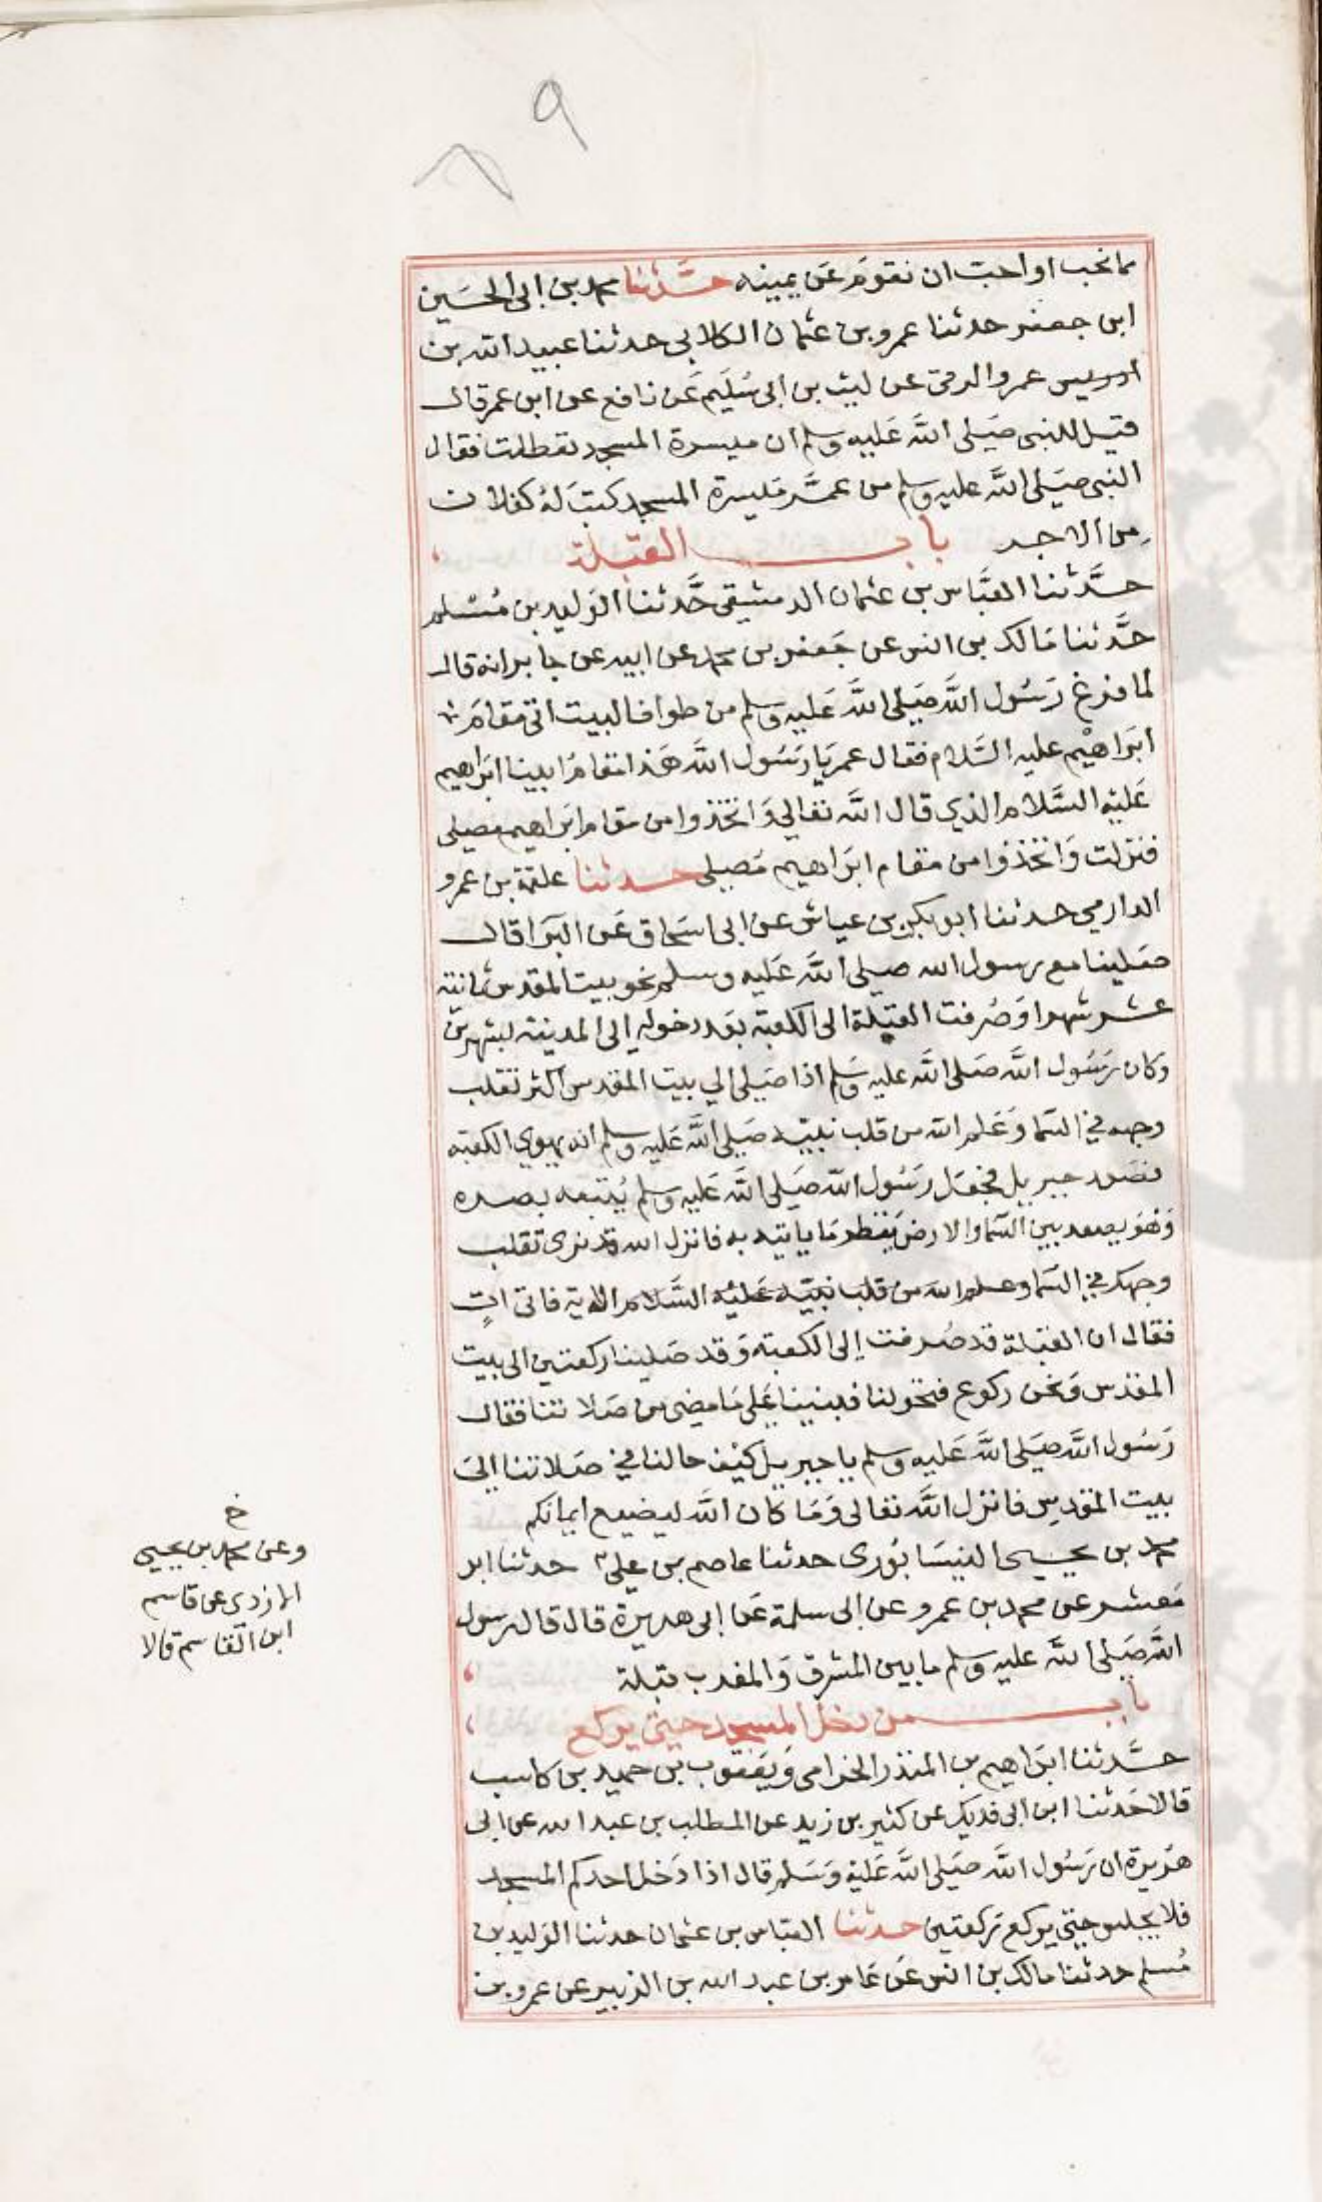 ٨٩
مما نحب او احبّ ان نقوم عَن يمينه حدّثنا محمد بن ابي الحسَين
ابن جعفر حدثنا عمرو بن عثمان الكلابي حدثنا عبيد الله بن
عمرو الرقى عن ليث بن ابى سُلَيم عَن نافع عن ابن عمر قال
قيل للنبي صَلى الله عَليه وسلم ان ميسرة المسجد تعطلت فقال
النبي صَلى الله عليه وسلم من عمَّر مَيسرة المسجد كتبَ لهُ كفلان
من الاجر باب القبلة
حدَّثنا العبَّاس بن عثمان الدمشقى حَّدثنا الوَليد بن مُسْلم
حدَّثنا مَالك بن انس عن جَعفر بن محمد عن ابيه عن جابر انه قال
لما فرغ رَسُول الله صَلى الله عَليه وسلم من طواف البيت اتى مقامَ
ابرَاهيْم عليه السَّلام فقال عمر يَا رَسُول الله هَذا مقامُ ابينا ابرَاهيم
عَليْه السَّلام الذي قال الله تعالي وَاتخذوا من مقام ابرَاهيم مصلى
فنزلت وَاتخذوا من مقام ابرَاهيم مُصلى حدثنا علقمة بن عمرو
الدارمي حدثنا ابو بكر بن عياش عن ابى اسحَاق عَن البَرا قال
صَلينا مع رسول الله صلى الله عَليه وسلم نحو بيت المقدس ثمانية
عشر شهرا وَصُرفت القبلة الى الكعبة بعَد دخوله الى المدينة بشهرين
وَكان رَسُول الله صَلى الله عليه وسَلم اذا صَلى الي بيت المقدس اكثر تقلب
وجهه في السَّما وَعَلم الله من قلب نبيّه صَلى الله عَليه وسلم انه يهوي الكعبة
فصَعد جبريل فجعَل رَسُول الله صَلى الله عَليه وسلم يُتبعه بصره
وَهوَ يصعد بين السَّما والارض يَنظر مَا ياتيه به فانزل الله قد نرى تقلب
وجهك في السَّما وعلم الله من قلب نبيّه عَليْه السَّلام الاية فاتى اتٍ
فقال ان القبلة قد صُرفت إلى الكعبة وَقد صَلينا ركعتين الى بيت
المقدس وَنحن ركوع فتحولنا فبنينا عَلى مَا مضى من صَلاتنا فقال
رَسُول الله صَلى الله عَليه وسلم يا جبريل كيْف حالنا في صَلاتنا الىَ
بيت المقدس فانزل الله تعالى وَمَا كان الله ليضيع ايمانكم
محمد بن يحيى النيسَابُورى حدثنا عاصم بن علي حدثنا ابو
مَعشر عن محمد بن عمرو عن ابى سلمة عَن ابى هريرة قال قال رسول
الله صَلى الله عليه وسلم ما بين المشرق وَالمغرب قبلة
باب من دخل المسجد حتى يركع
حدَّثنا ابرَاهيم بن المنذر الحزامى وَيَعقوب بن حميد بن كاسب
قالا حَدثنا ابن ابى فديك عن كثير بن زيد عن المطلب بن عبد الله عن ابى
هَريرة ان رَسُول الله صَلى الله عَليْه وَسَلم قال اذا دَخل احدكم المسجد
فلا يجلس حتى يركع ركعتين حدثنا العبَّاس بن عثمان حدثنا الوَليد بن
مُسلم حدثنا مالك بن انس عَن عَامر بن عبد الله بن الزبير عن عمرو بن
خ
وعن محمد بن يحيى
الازدى عن قاسم
ابن القاسم قالا